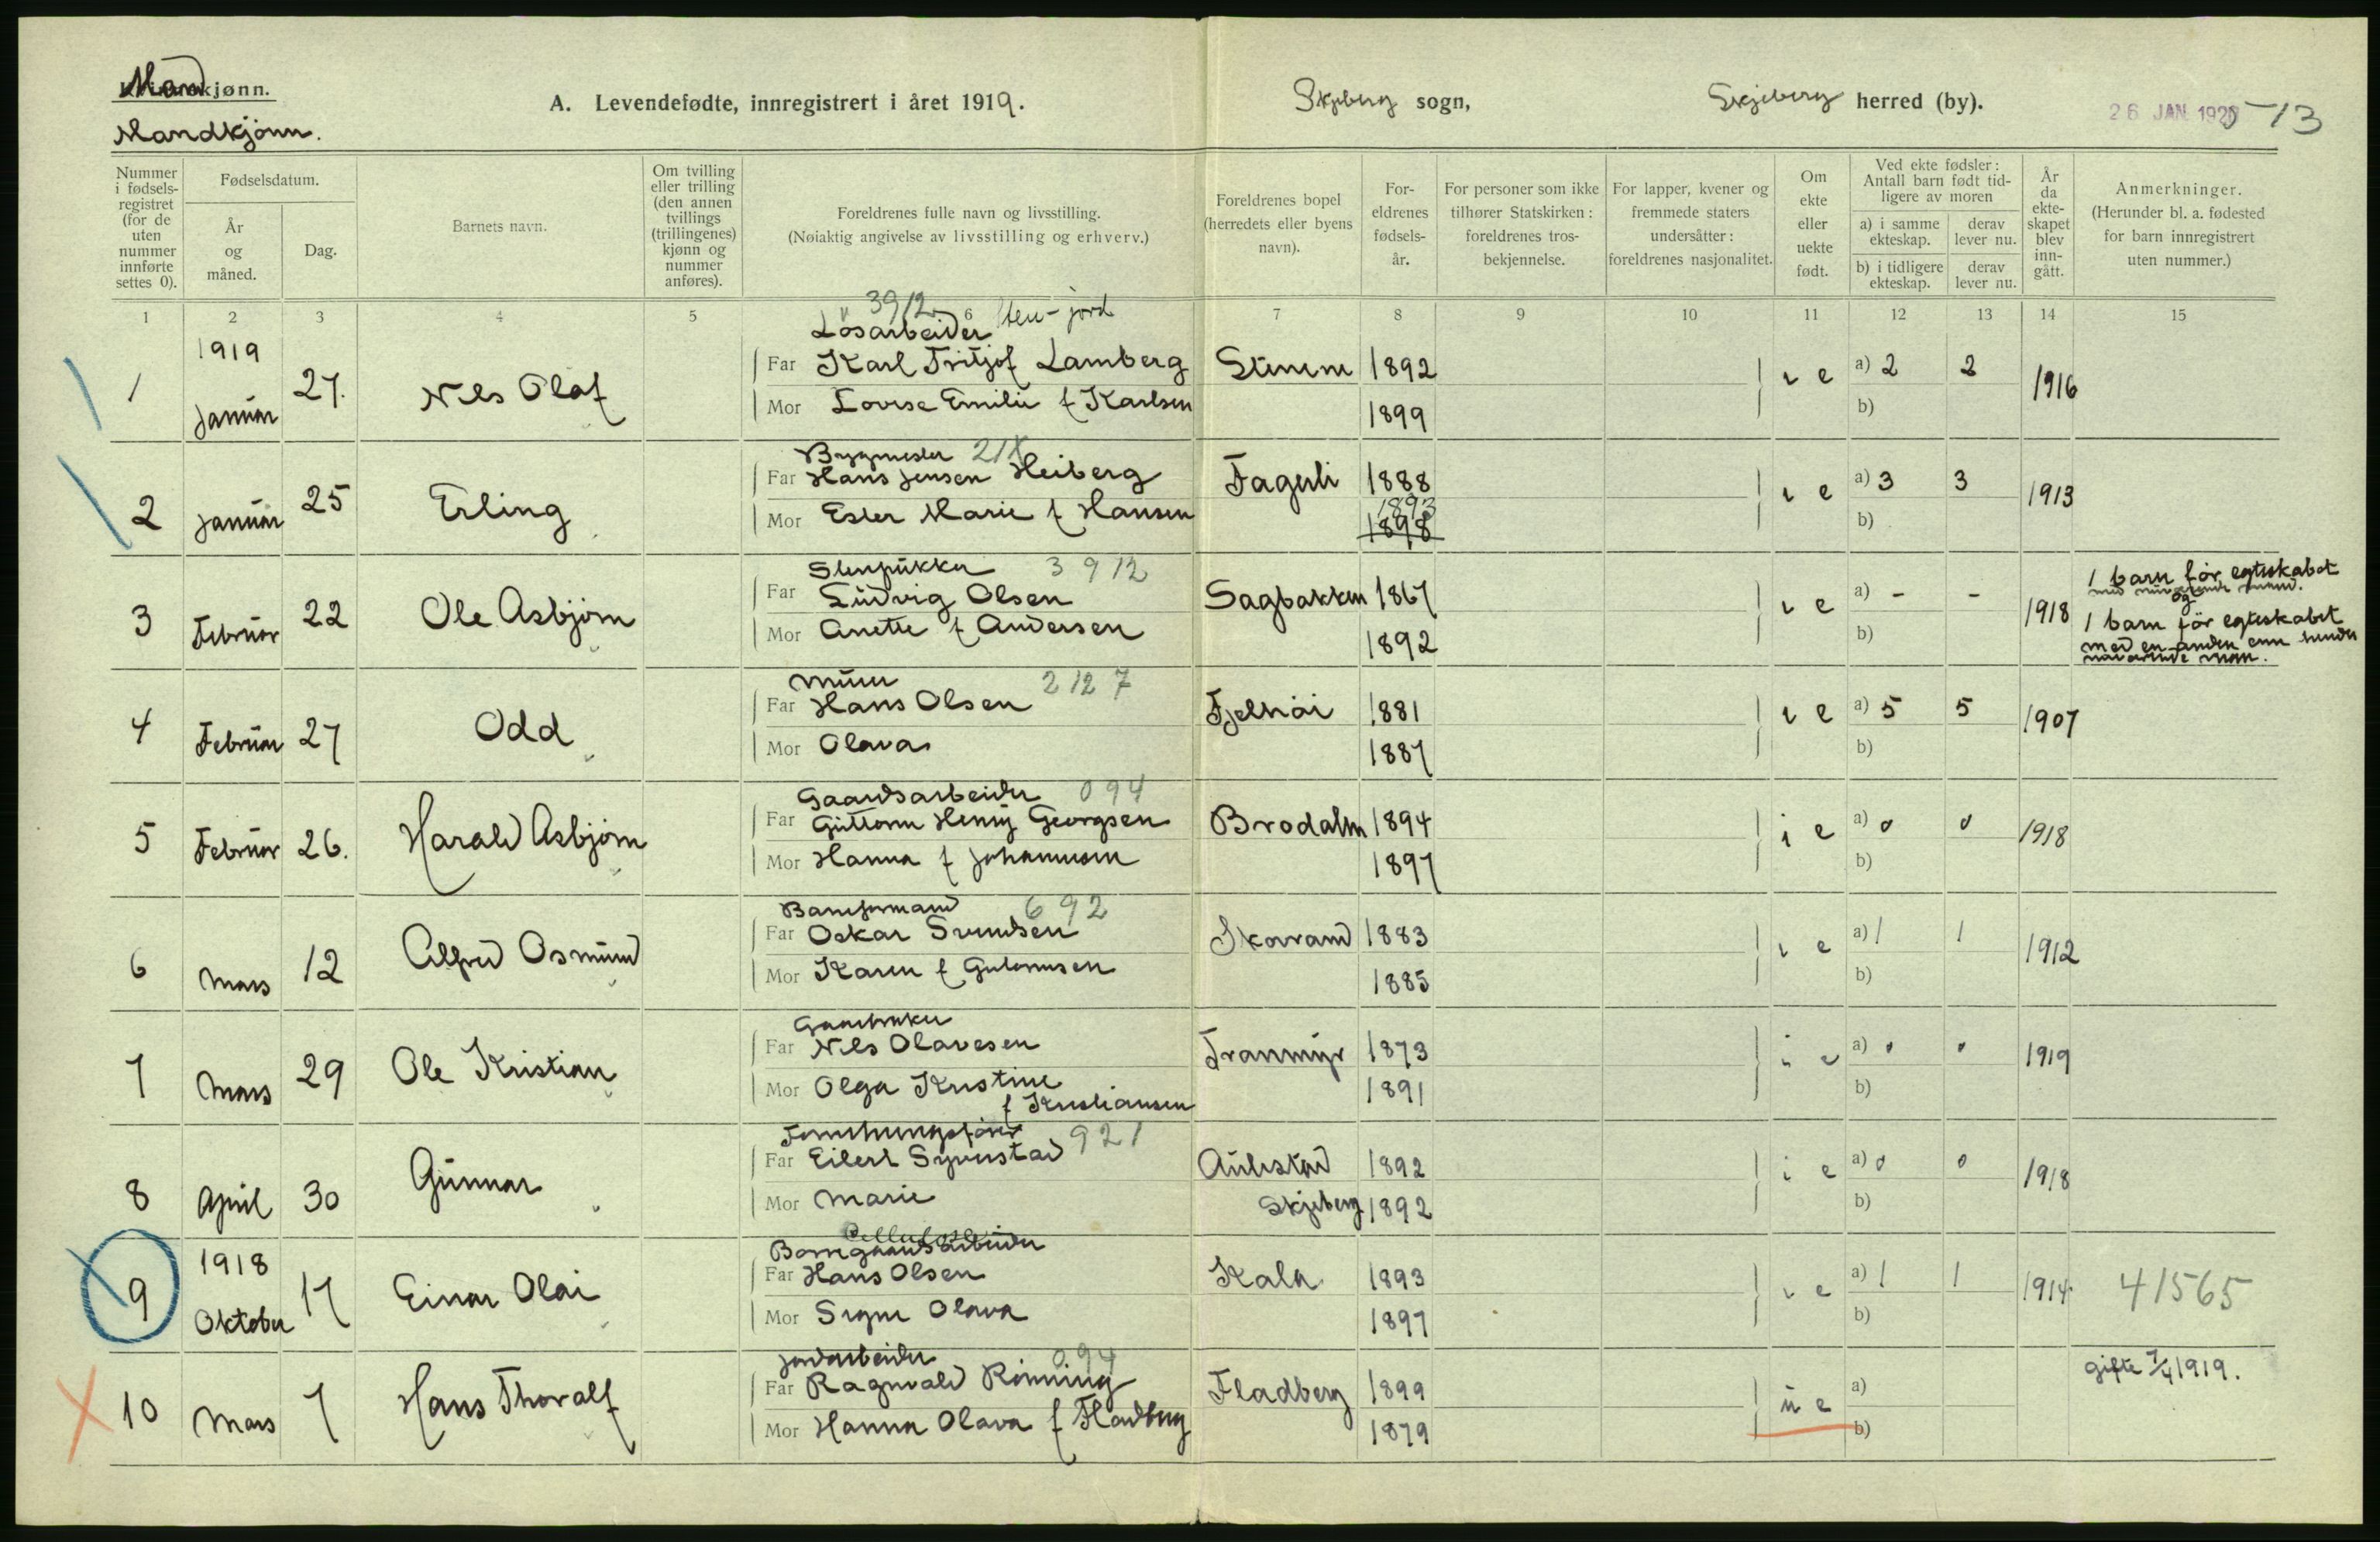 Mandkjønn.
Mandkjönn.
A. Levendefødte, innregistrert i året 1919.
Skjeberg sogn,
Skjeberg herred (by).
26 JAN 1920
13
Nummer i fødsels-registret (for de uten nummer innførte settes 0).
Fødselsdatum.
År og måned.
Dag.
Barnets navn.
Om tvilling eller trilling (den annen tvillings (trillingenes) kjønn og nummer anføres).
Foreldrenes fulle navn og livsstilling.
(Nøiaktig angivelse av livsstilling og erhverv.)
Foreldrenes bopel (herredets eller byens navn).
For-eldrenes fødsels-år.
For personer som ikke tilhører Statskirken: foreldrenes tros-bekjennelse.
For lapper, kvener og fremmede staters undersåtter: foreldrenes nasjonalitet.
Om ekte eller uekte født.
Ved ekte fødsler: Antall barn født tid-ligere av moren
a) i samme ekteskap.
derav lever nu.
b) i tidligere ekteskap.
derav lever nu.
År da ekte-skapet blev inn-gått.
Anmerkninger.
(Herunder bl. a. fødested for barn innregistrert uten nummer.)
1 2 3 4 5 6 7 8 9 10 11 12 13 14 15
3912 sten-jord
Lösarbeider
1 1919 Januar 27. Nils Olaf
Far Karl Fritjof Lamberg Stenene 1892
Mor Lovise Emilie f Karlsen 1899
i e a) 2 2 1916
b)
Bygmester 21X
2 Januar 25 Erling
Far Hans Jensen Heiberg Fagerli 1888
Mor Ester Marie f Hansen 1893 1898
i e a) 3 3 1913
b)
Stenpukker 3912
3 Februar 22 Ole Asbjörn
Far Ludvig Olsen Sagbakken 1867
Mor Anette f Andersen 1892
i e a) - - 1918
b)
1 barn för egteskabet
med nuværende mand.
og
1 barn för egteskabet
med en anden enn hendes
nuværende man.
Murer 2127
4 Februar 27 Odd
Far Hans Olsen Fjelhöi 1881
Mor Olava 1887
i e a) 5 5 1907
b)
Gaardsarbeider 094
5 Februar 26. Harald Asbjörn
Far Guttorm Henry Georgsen Brodalm 1894
Mor Hanna f Johannesen 1897
i e a) 0 0 1918
b)
Baneformand 692
6 Mars 12 Alfred Osmund
Far Oskar Svendsen Skovrand 1883
Mor Karen f Gulbransen 1885
i e a) 1 1 1912
b)
Gaardbruker
7 Mars 29 Ole Kristian
Far Nils Olavesen Tranmyr 1873
Mor Olga Kristine
f Kristiansen 1891
i e a) 0 0 1919
b)
Forretningsförer 921
8 April 30 Gunnar
Far Eilert Syverstad Aulestad 1892
Mor Marie Skjeberg 1892
i e a) 0 0 1918
b)
Cellulose
Borregaards arbeider
9 1918 Oktober 17 Einar Olai
Far Hans Olsen Kala 1893
Mor Signe Olava 1897
i e a) 1 1 1914.
b)
41565
Jordarbeider 094
10 Mars 7 Hans Thoralf
Far Ragnvald Rönning Fladberg 1899
Mor Hanna Olava f Fladberg 1879
u e a)
b)
gifte 7/4 1919.